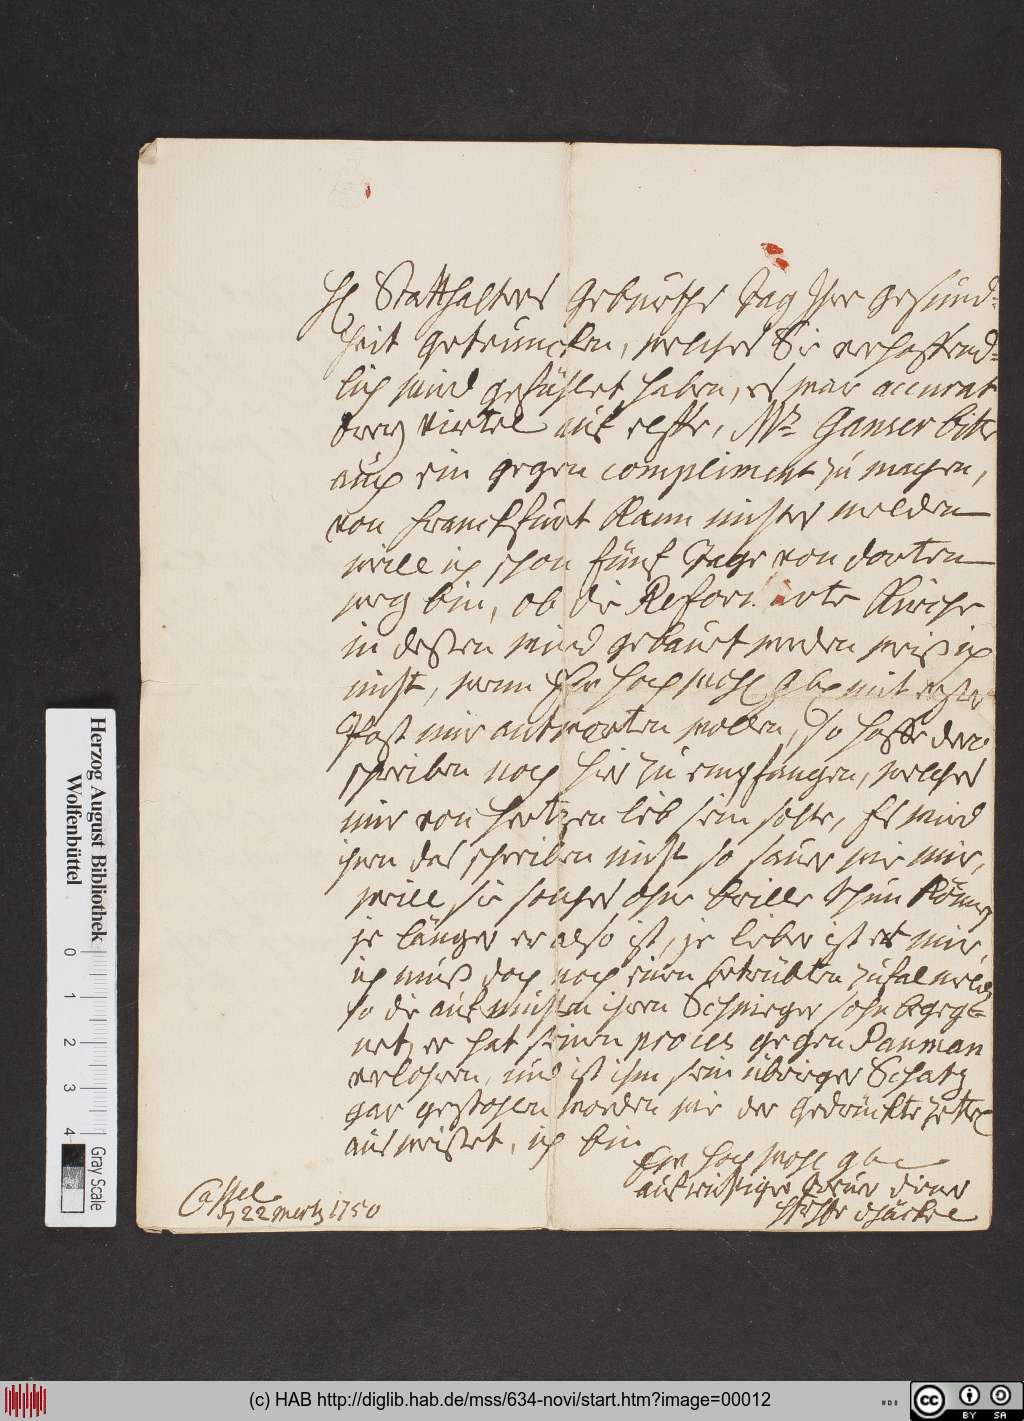 H. Statthalters Gebuhrths tag Ihre gesund=
heit getruncken, welches Sie verhoffend=
lich wird gefühlet haben, es war accurat
drey viertel auf elffe, Mr Ganser bitte
auch ein gegen compliment zu machen,
von franckfurt kann nichtes melden
weill ich schon fünf tage von dorten
weg bin, ob die Reformirte Kirche
in dessen wird gebauet werden weiß ich
nicht, wenn Ew hoch wohl gb mit erster
Post mir antworten wollen, so hoffe der
schreiben noch hier zu empfangen, welches
mir von hertzen lieb sein sollte, Es wird
ihnen das schreiben nicht so sauer wie mir,
weill sie solches ohne brille thun können
je länger er also ist, je lieber ist er mir,
ich muß doch noch einen betrübten zufal meld
so die aufrichten ihren Schwieger sohn begeg=
net, er hat seinen proces gegen Dauman
verlohren, und ist ihm sein übriger Schatz
gar gestohlen worden wie der gedruckte zettel
ausweißet, ich bin
Ew hoch wohl gb
aufrichtiger treuer diener
Cassel
d 22 mertz 1750
Herzog August Bibliothek
Wolfenbüttel
0 1 2 3 4
Gray Scale
(c) HAB http://diglib.hab.de/mss/634-novi/start.htm?image=00012
cc BY SA